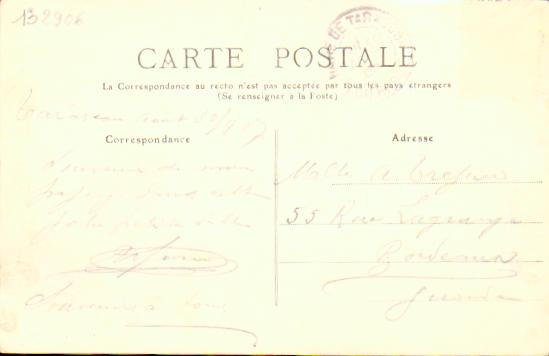 132906
CARTE POSTALE
La Correspondance au recto n'est pas acceptée par tous les pays étrangers
(Se renseigner à la Poste)
Correspondance
Adresse
Souvenir de mon
passage dans cette
jolie petite ville
Souvenirs à tous
Melle A.
55 Rue Lagrange
Bordeaux
Gironde